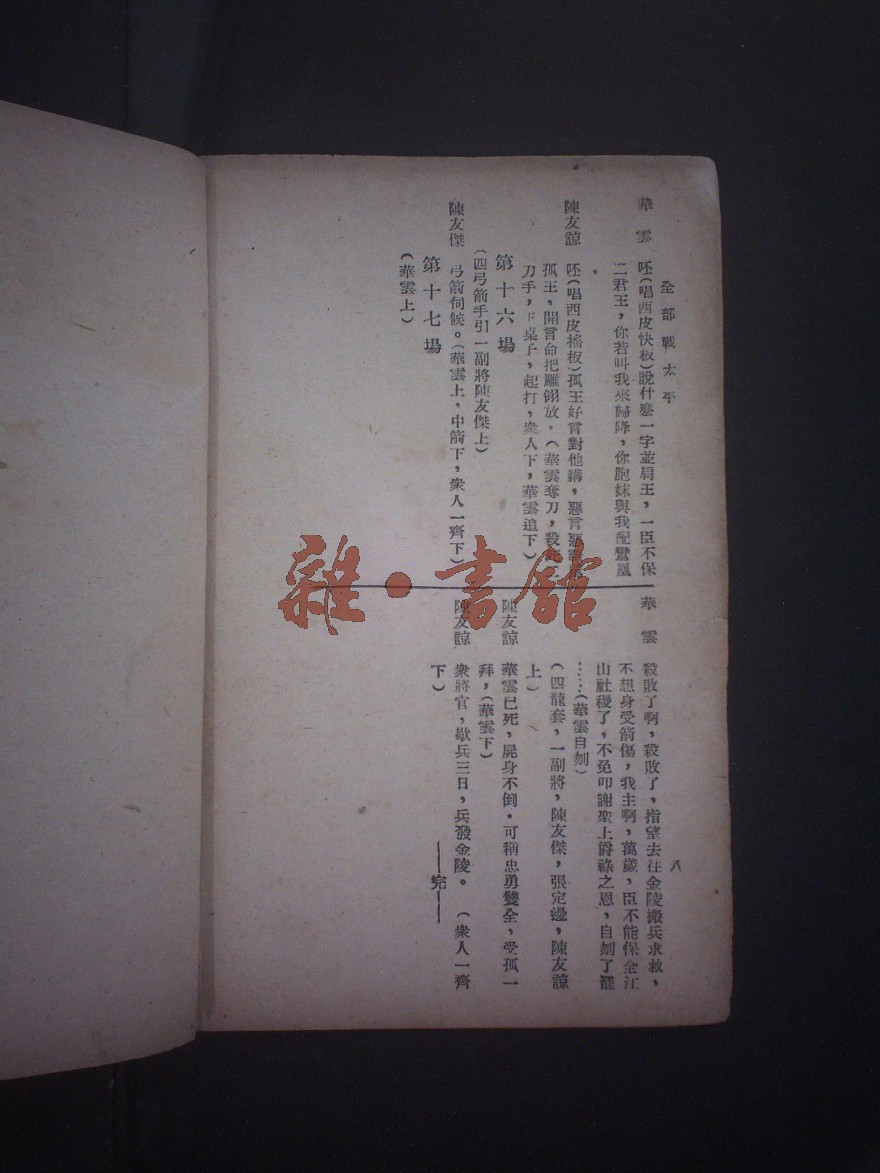 全部戰太平
八
華雲 呸(唱西皮快板)說什麼一字並肩王，一臣不保
二君王，你若叫我來歸降，你胞妹與我配鸞凰
陳友諒 呸(唱西皮搖板)孤王好言對他講，惡言惡
孤王，開言命把雕翎放。(華雲奪刀，殺死
刀手，下桌子，起打，衆人下，華雲追下)
第十六場
(四弓箭手引一副將陳友傑上)
陳友傑 弓箭伺候。(華雲上，中箭下，衆人一齊下)
第十七場
(華雲上)
華雲 殺敗了啊，殺敗了，指望去往金陵搬兵求救，
不想身受箭傷，我主啊，萬歲，臣不能保全江
山社稷了，不免叩謝聖上爵祿之恩，自刎了罷
……(華雲自刎)
(四龍套，一副將，陳友傑，張定邊，陳友諒
上)
陳友諒 華雲已死，屍身不倒。可稱忠勇雙全，受孤一
拜，(華雲下)
陳友諒 衆將官，歇兵三日，兵發金陵。(衆人一齊
下)
——完——
雜·書舘